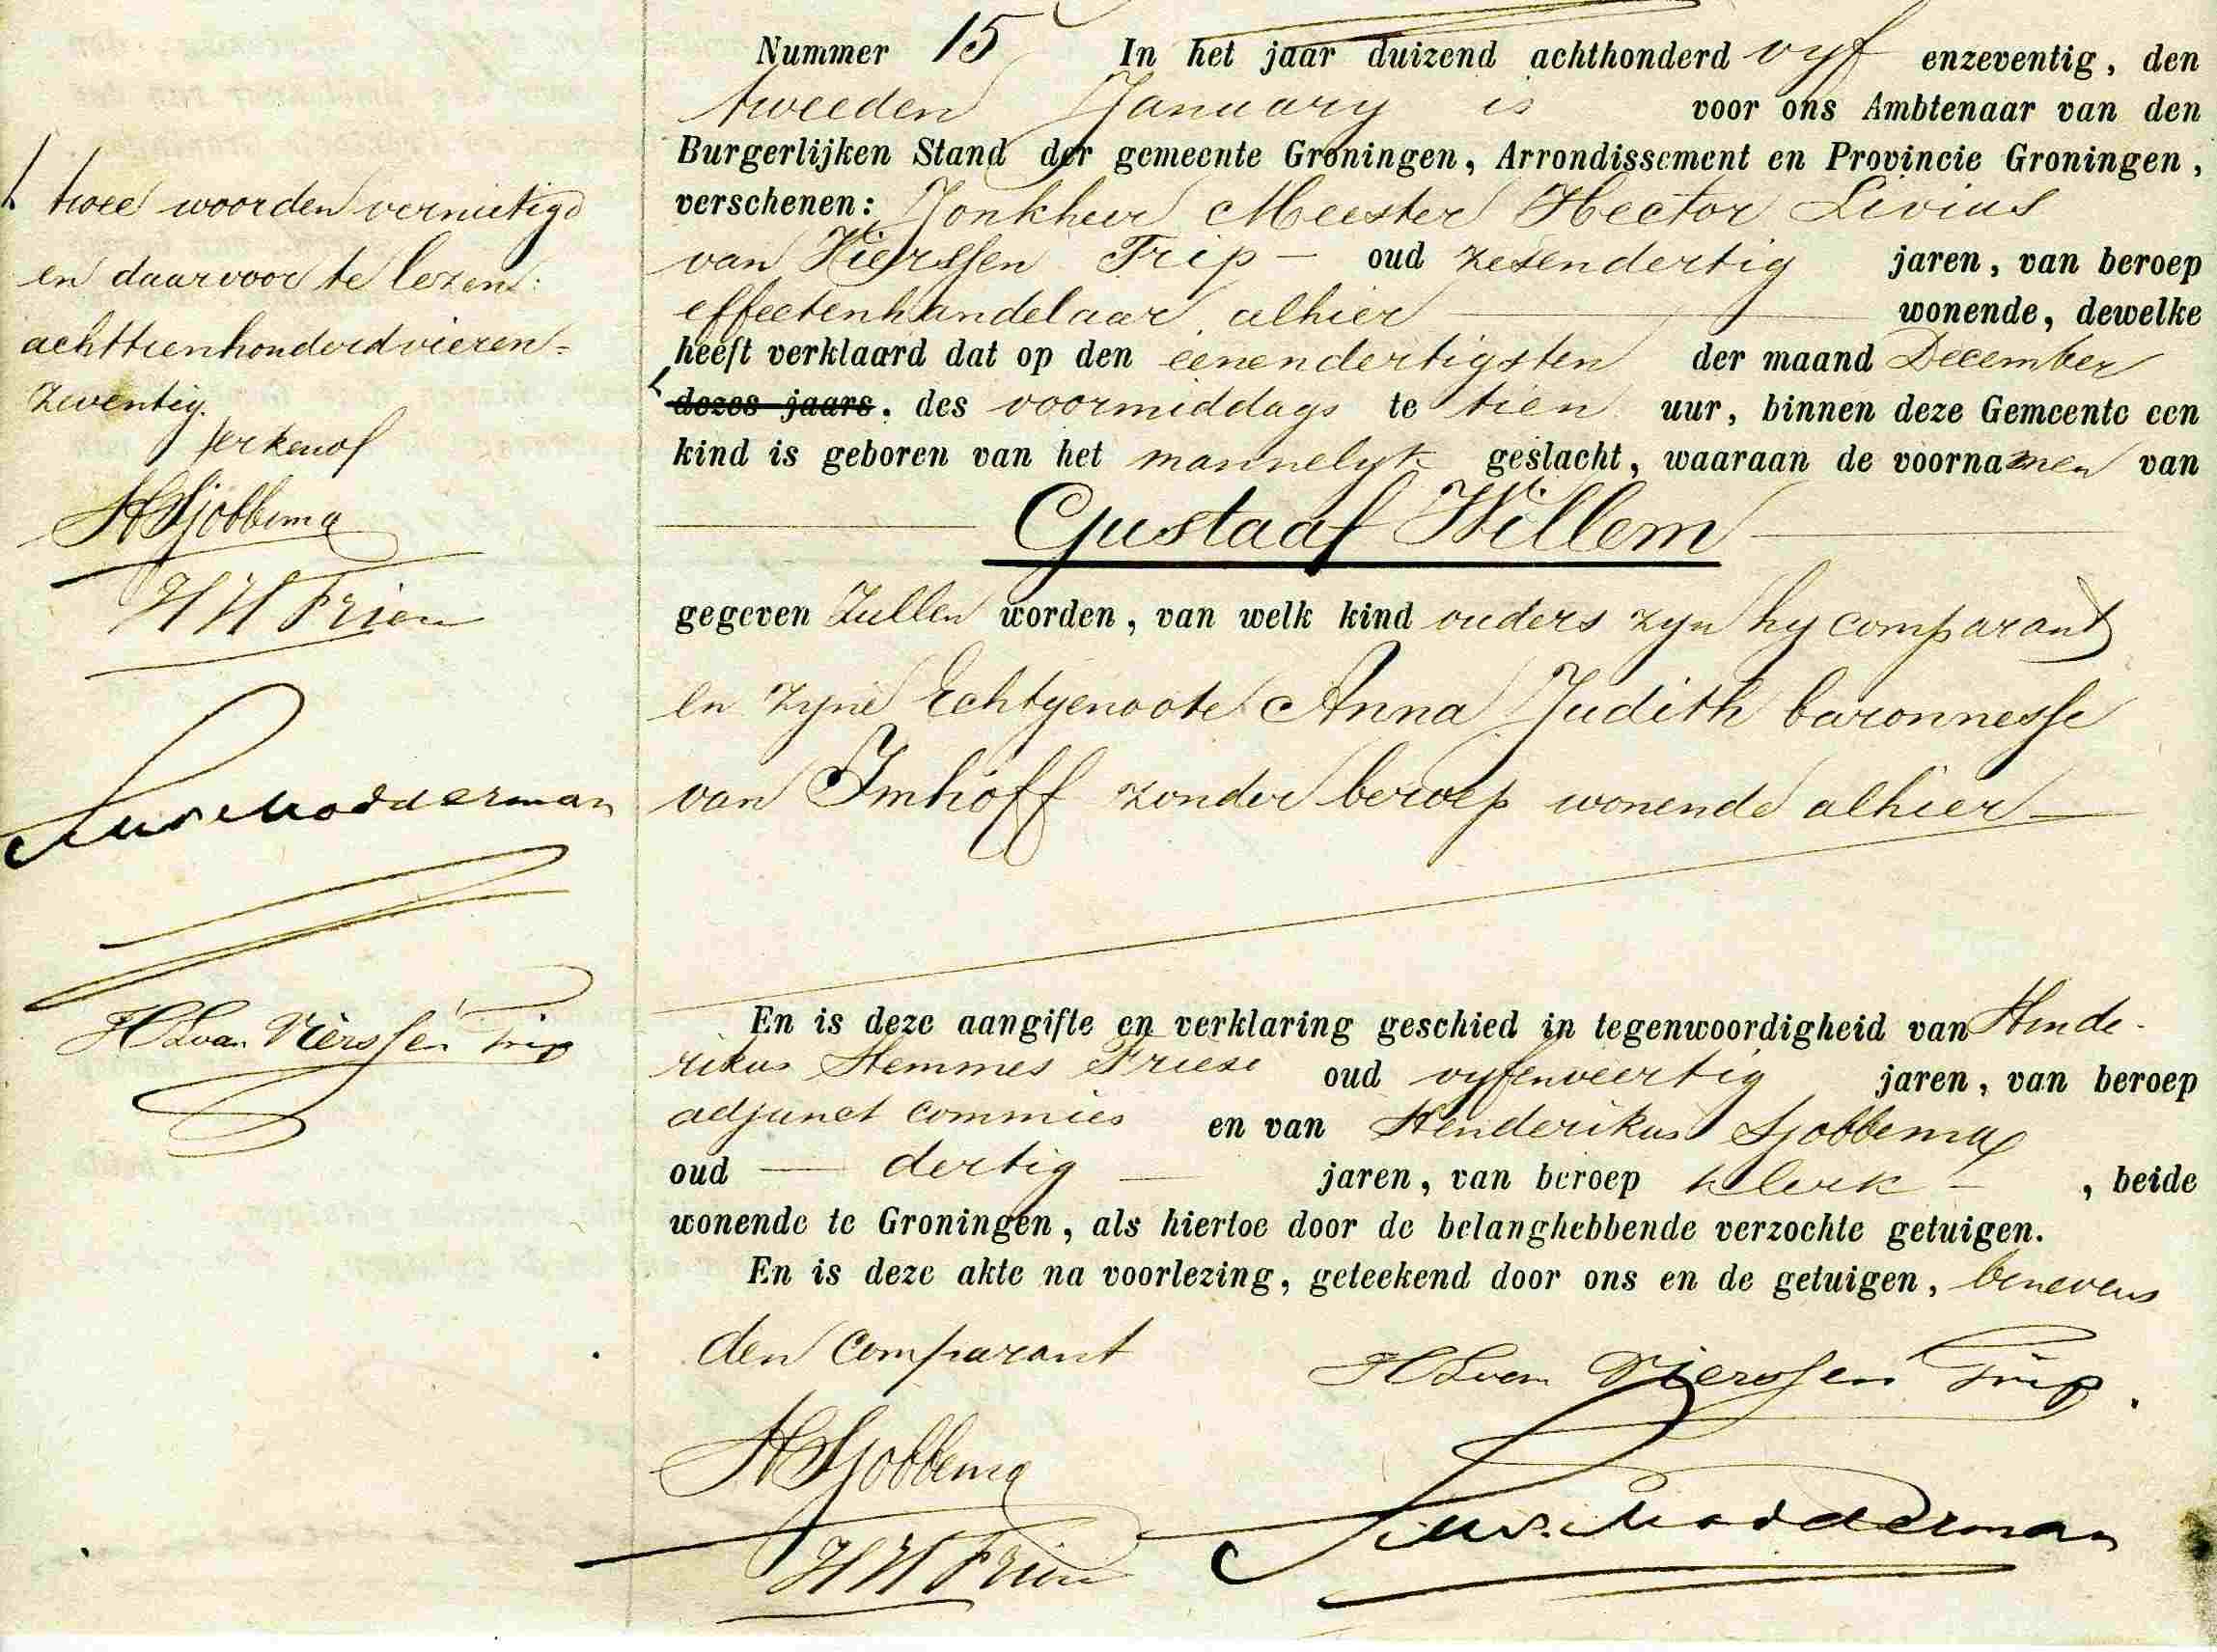 Nummer 15 In het jaar duizend achthonderd vyf enzeventig, den
tweeden January is voor ons Ambtenaar van den
Burgerlijken Stand der gemeente Groningen, Arrondissement en Provincie Groningen,
verschenen: Jonkheer Meester Hector Livius
van Vierssen Trip — oud zesendertig jaren, van beroep
effectenhandelaar alhier wonende, dewelke
heeft verklaard dat op den eenendertigsten der maand December
dezes jaars. des voormiddags te tien uur, binnen deze Gemeente een
kind is geboren van het mannelyk geslacht, waaraan de voornamen van
Gustaaf Willem
gegeven zullen worden, van welk kind ouders zyn hy comparant
en zyne Echtgenoote Anna Judith baronnesse
van Imhoff zonder beroep wonende alhier —
En is deze aangifte en verklaring geschied in tegenwoordigheid van Hende-
rikus Hemmes Friese oud vyfenveertig jaren, van beroep
adjunct commies en van Henderikus Sjobbema
oud — dertig — jaren, van beroep klerk —, beide
wonende te Groningen, als hiertoe door de belanghebbende verzochte getuigen.
En is deze akte na voorlezing, geteekend door ons en de getuigen, benevens
den Comparant
HLvan Vierssen Trip.
HSjobbema
Modderman
HH Friese
twee woorden vernietigd
en daarvoor te lezen:
achttienhonderdvieren=
zeventig.
HSjobbema
HH Friese
Modderman
HLvan Vierssen Trip